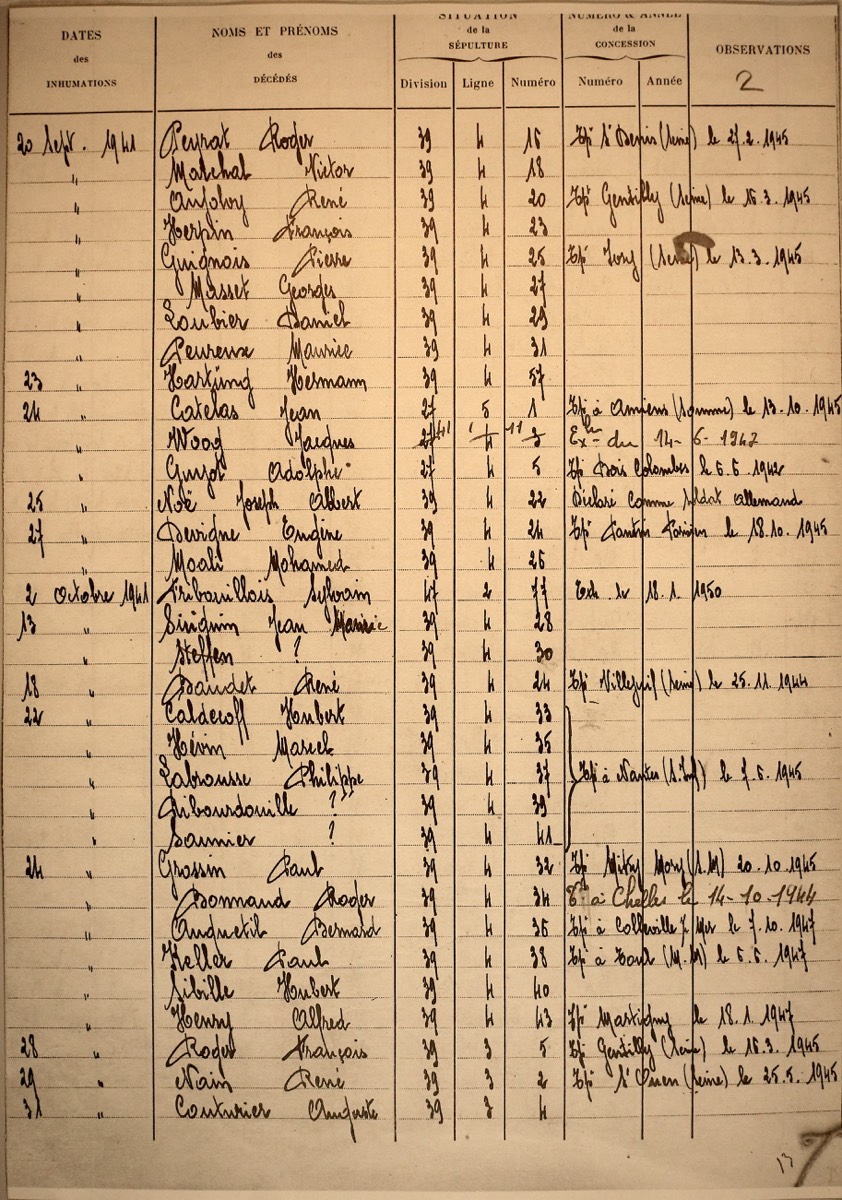 DATES des INHUMATIONS
NOMS ET PRÉNOMS des DÉCÉDÉS
SITUATION de la SÉPULTURE
NUMÉRO & ANNÉE de la CONCESSION
OBSERVATIONS
2
Division Ligne Numéro Numéro Année
20 Sept. 1941 Peyrat Roger 39 4 16 Tpt St Denis (Seine) le 27.2.1945
" Marchal Victor 39 4 18
" René 39 4 20 Tpt Gentilly (Seine) le 16.3.1945
" Herpin François 39 4 23
" Guignois Pierre 39 4 25 Tpt Ivry (Seine) le 13.3.1945
" Masset Georges 39 4 27
" Loubier Daniel 39 4 29
" Peureux Maurice 39 4 31
23 " Hartüng Hermann 39 4 57
24 " Catelas Jean 27 5 1 Tpt à Amiens (Somme) le 13.10.1945
" Wood Jacques 4 3 du 14-6-1947
" Guyot Adolphe 27 4 5 Tpt Bois Colombes le 6.6.1942
25 " Noë Joseph Albert 39 4 22 Déclaré comme soldat allemand
27 " Devigne Eugène 39 4 24 Tpt Pantin Parisien le 18.10.1945
" Moali Mohamed 39 4 26
2 Octobre 1941 Tribouillois Sylvain 47 2 77 Exh. le 18.1.1950
13 " Jean Maurice 39 4 28
" Steffen ? 39 4 30
18 " Baudet René 39 4 24 Tpt Villejuif (Seine) le 25.11.1944
22 " Caldecoff Hubert 39 4 33
" Hévin Marcel 39 4 35
" Labrousse Philippe 39 4 37 Tpt à Nantes (S. Inf) le 7.6.1945
" Ribourdouille ? 39 4 39
" Saunier ? 39 4 41
24 " Grossin Paul 39 4 32 Tpt Mitry Mory (S.M) 20.10.1945
" Bonnand Roger 39 4 34 Tpt à Chelles le 14-10-1944
" Anquetil Bernard 39 4 36 Tpt à Colleville s/ Mer le 7.10.1947
" Keller Paul 39 4 38 Tpt à Toul (M.M) le 6.6.1947
" Sibille Hubert 39 4 40
" Henry Alfred 39 4 43 Tpt Martigny le 18.1.1947
28 " Roger François 39 3 5 Tpt Gentilly (Seine) le 16.3.1945
29 " Nain René 39 3 2 Tpt St Ouen (Seine) le 25.5.1945
31 " Couturier Auguste 39 3 4
13